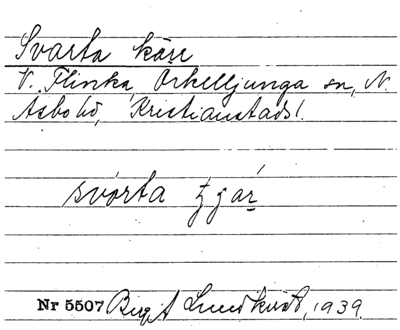 Svarta käre
V. Flinka, Örkelljunga sn, N.
Åsbo hd, Kristianstads l.
svarta ʈjär
Nr 5507 Birgit Lundkvist, 1939.